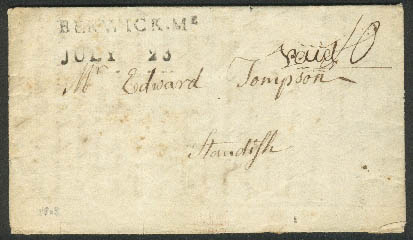 BERWICK.Mᴱ
JULY 23
paid 10
Mr Edward Tompson
Standish
1808